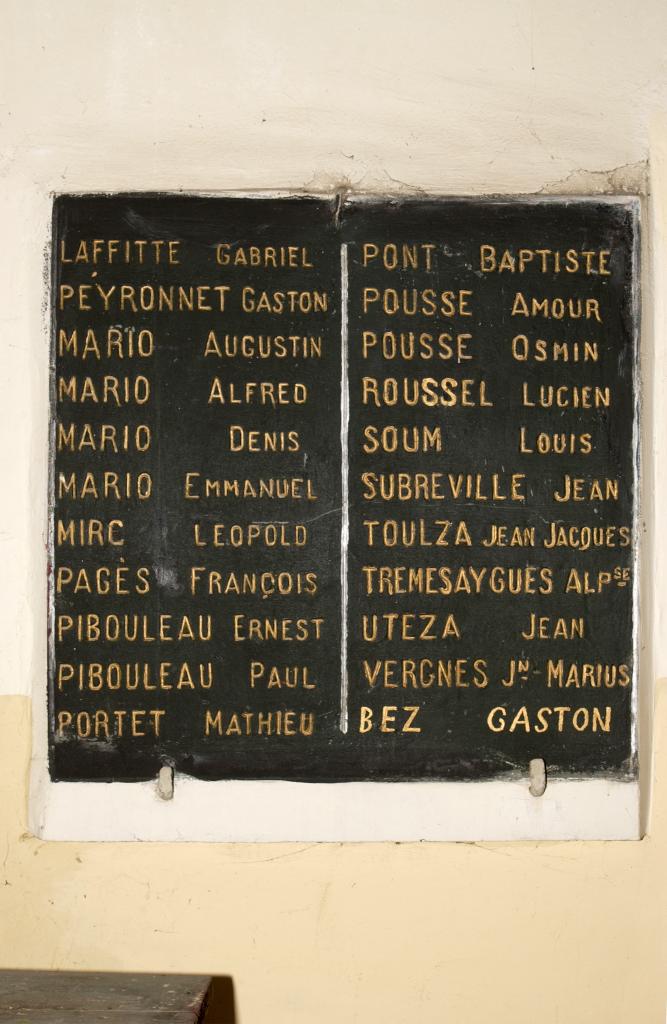 LAFFITTE GABRIEL
PÉYRONNET GASTON
MARIO AUGUSTIN
MARIO ALFRED
MARIO DENIS
MARIO EMMANUEL
MIRC LEOPOLD
PAGÈS FRANÇOIS
PIBOULEAU ERNEST
PIBOULEAU PAUL
PORTET MATHIEU
PONT BAPTISTE
POUSSE AMOUR
POUSSE OSMIN
ROUSSEL LUCIEN
SOUM LOUIS
SUBREVILLE JEAN
TOULZA JEAN JACQUES
TREMESAYGUES ALPSE
UTEZA JEAN
VERGNES JN-MARIUS
BEZ GASTON